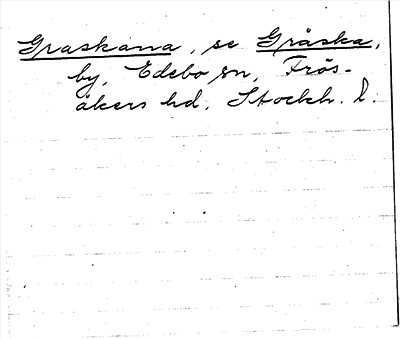 Graskana, se Gråska,
by, Edebo sn, Frös-
åkers hd, Stockh. l.